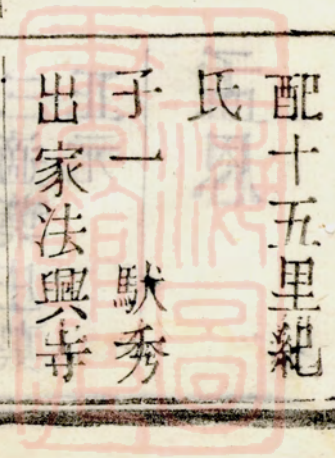 配十五里紀
氏
子一 馱秀
出家法興寺